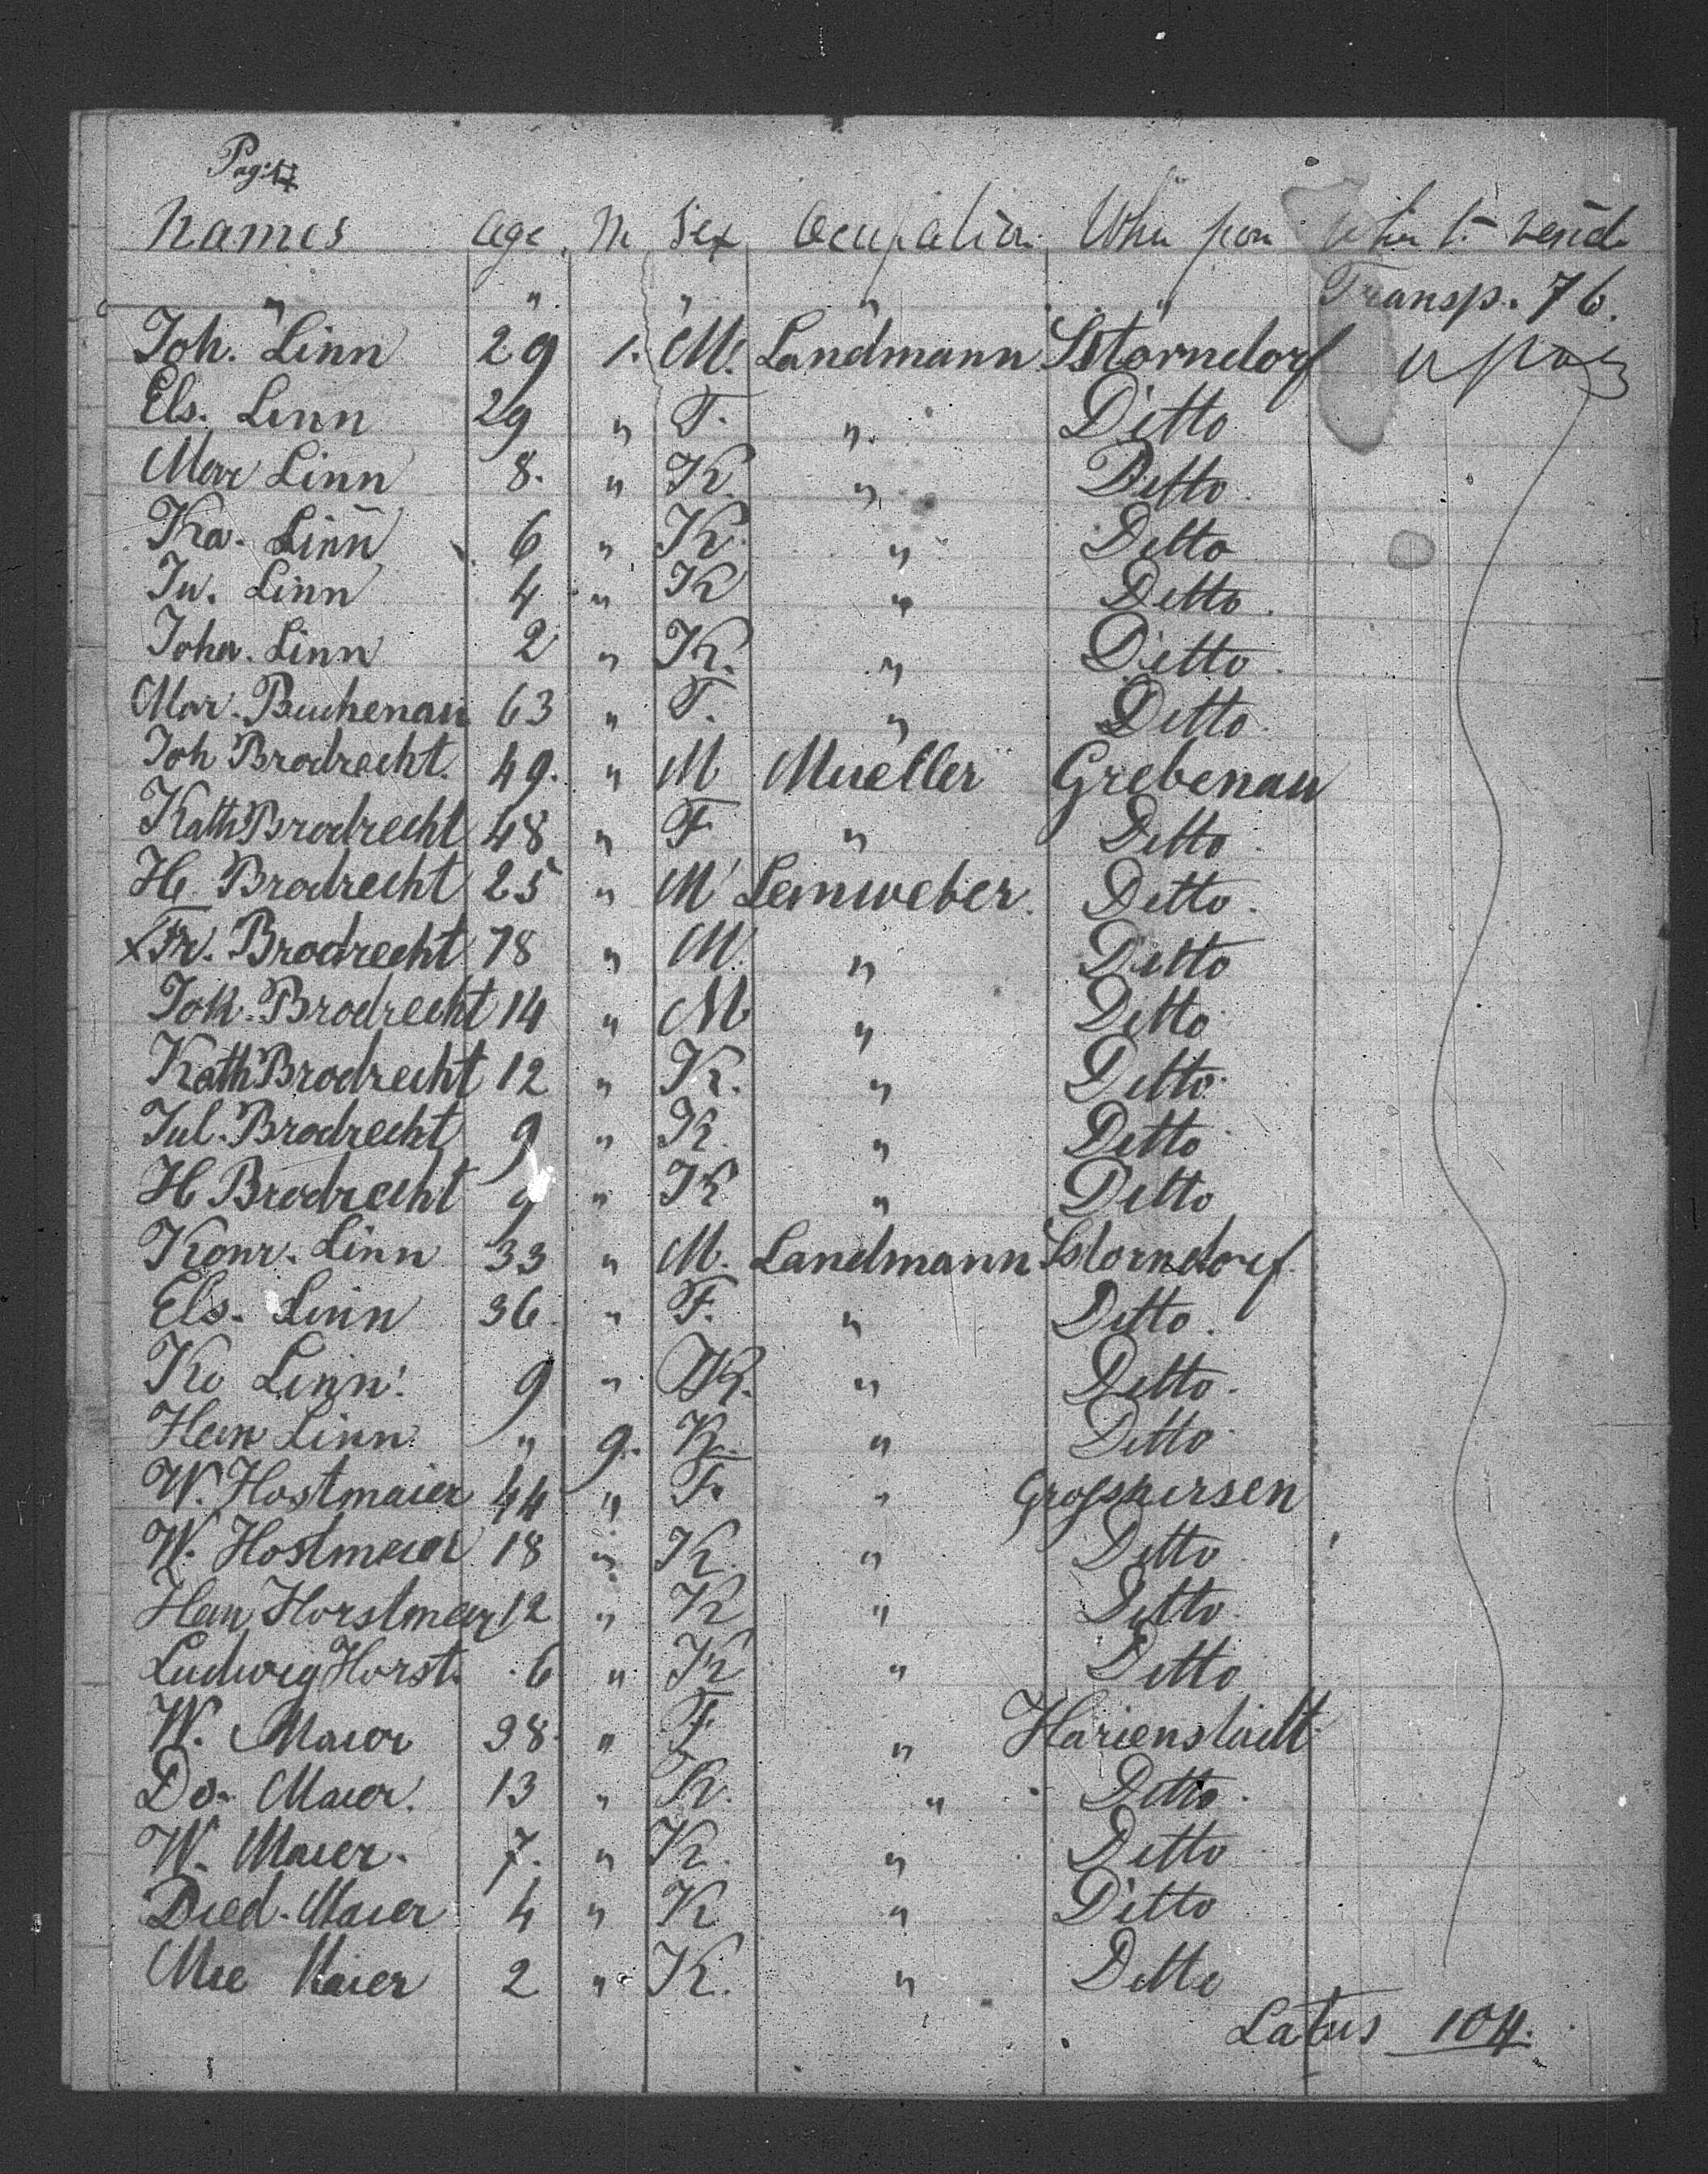 Pag: 4
Names age M Sex Ocupation Whu from Whu to resid
" " " " " Transp. 76.
Joh. Linn 29 1. M. Landmann Storndorf
Els. Linn 29 " F. " Ditto
Mar Linn 8. " K. " Ditto
Ka. Linn 6 " K. " Ditto
Ju. Linn 4 " K " Ditto.
Joha. Linn 2 " K. " Ditto.
Mar. Buchenau 63 " F. " Ditto.
Joh Brodrecht. 49. " M Mueller Grebenau
Kath Brodrecht 48 " F " Ditto.
He. Brodrecht 25 " M Leinweber. Ditto.
x Fr. Brodrecht 18 " M. " Ditto
Joh. Brodrecht 14 " M " Ditto
Kath Brodrecht 12 " K. " Ditto.
Jul. Brodrecht 9 " K. " Ditto
H Brodrecht 9 " K " Ditto
Konr. Linn 33 " M. Landmann Storndorf.
Els. Linn 36. " F. " Ditto.
Ko Linn. 9 " K. " Ditto.
Hein Linn " 9. K. " Ditto
W. Hostmaier 44 " F. " Grossnersen
W. Hostmeier 18 " K. " Ditto
Hein Horstmeier 12 " K " Ditto.
Ludwig Horst. 6 " K " Ditto
W. Maier 38. " F " Harienstadt
Do. Maier. 13 " K. " Ditto.
W. Maier. 7. " K. " Ditto
Died. Maier 4 " K " Ditto
Mie Maier 2 " K. " Ditto
Latus 104.